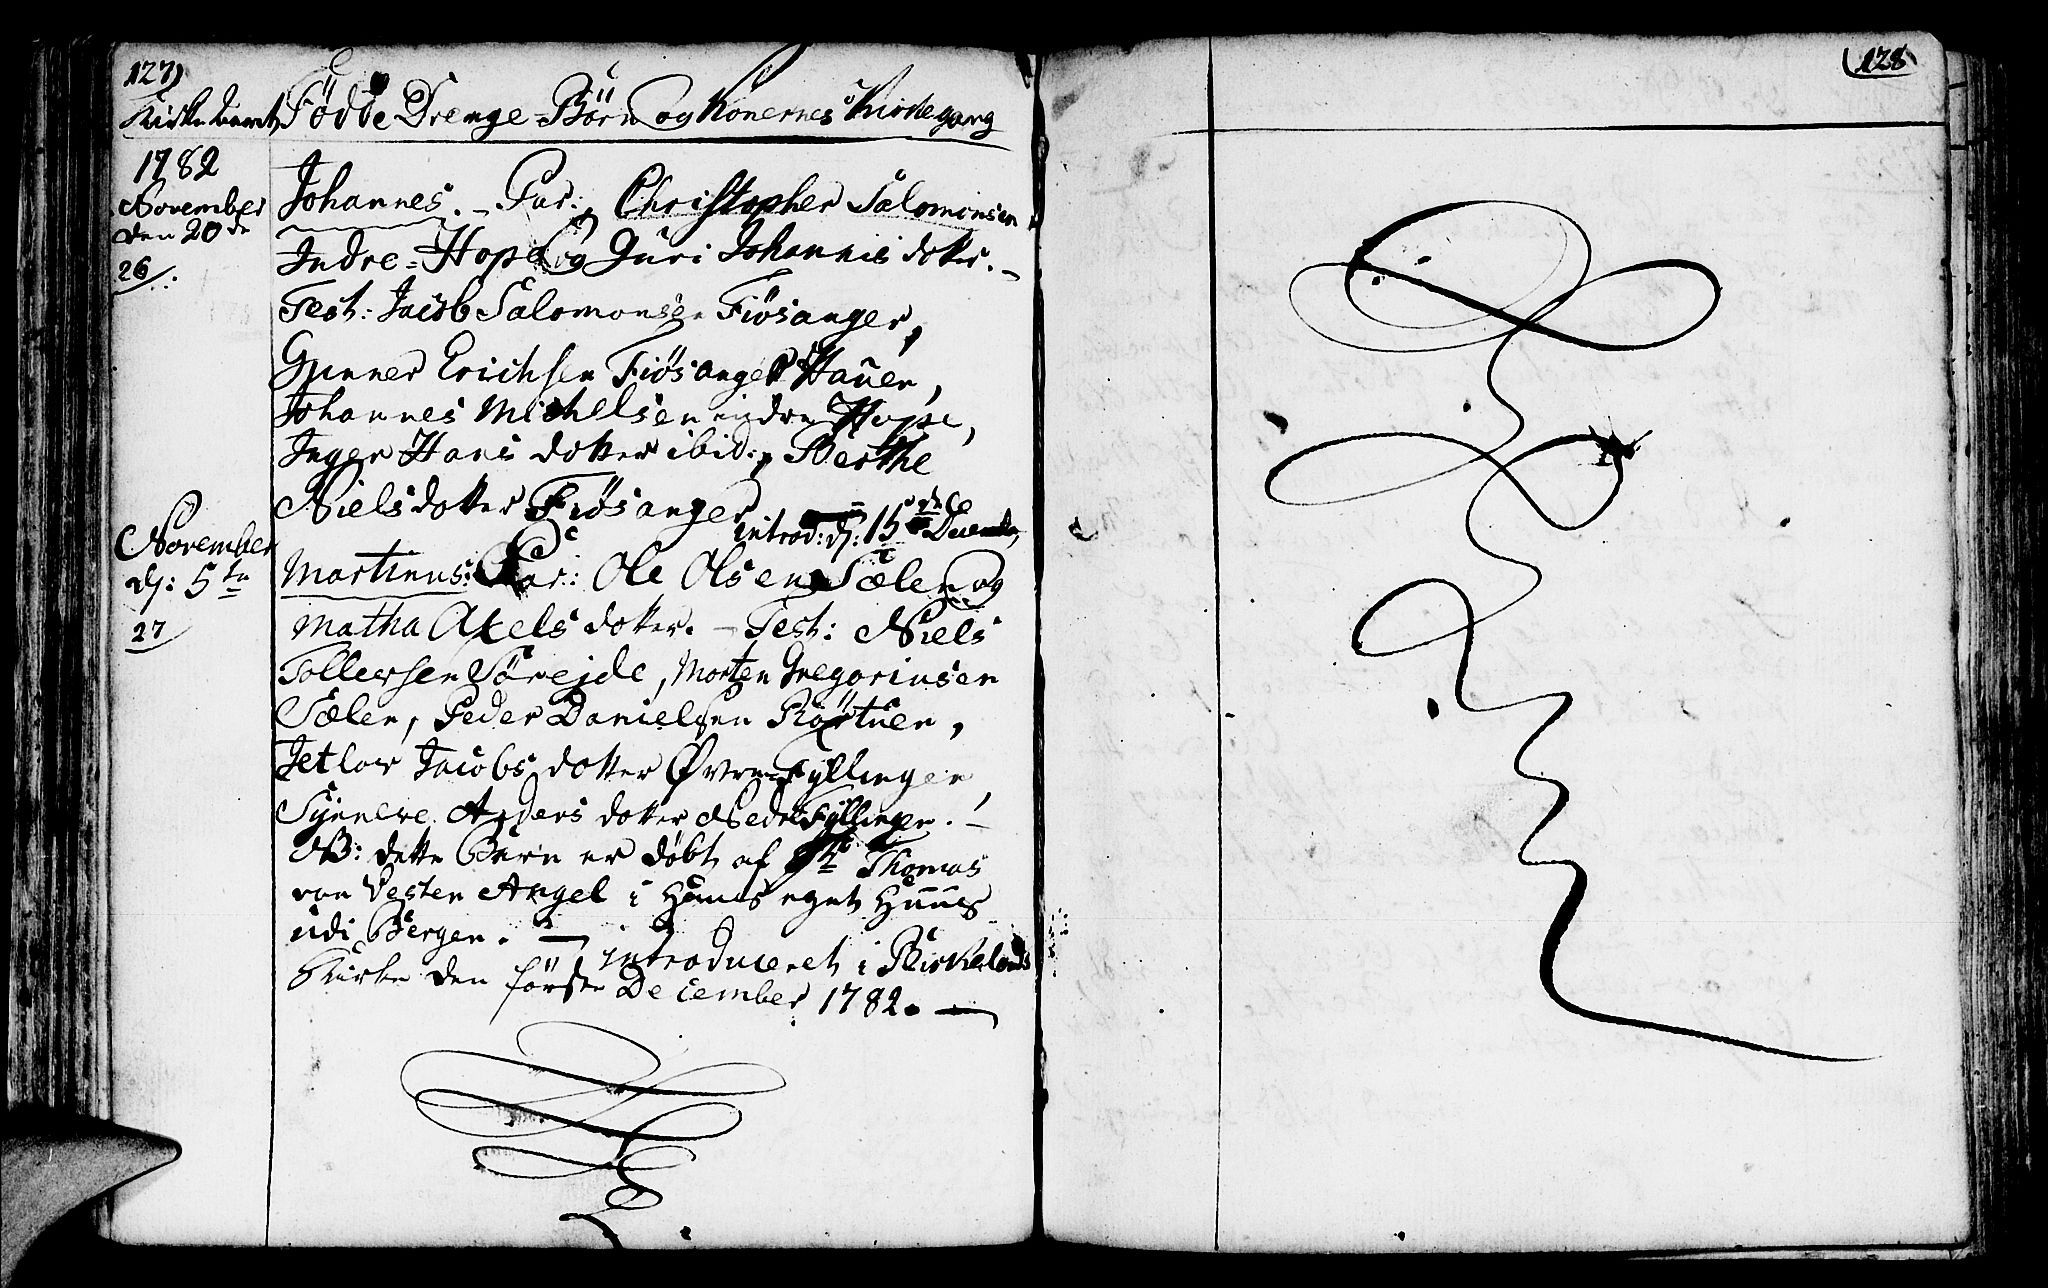 127)
Fødde Drenge-Børn og Konernes Kirkegang
1782
November
den 20de
26/.
Johannes. - Par: Christopher Salomonsen
Indre-Hope og Guri Johannis dotter. -
Test: Jacob Salomonsen Fiøsanger,
Gunner Erichsen Fiøsanger Hauen,
Johannes Michelsen indre Hope,
Inger Hans dotter ibid:, Berthe
Niels dotter Fiøsanger
introd: d: 15de
November
d: 5te
27/
Martinus: Par: Ole Olsen Sælen og
Matha Axels dotter. - Test: Niels
Tollevsen Sørejde, Morten Gregoriusen
Sælen, Peder Danielsen Rørtuen,
Jacobs dotter Øvre-Fyllingen,
Synneve Anders dotter Nedre Fyllingen. -
NB: dette Barn er døbt af Hr Thomas
von Vesten Angel i Hans eget Huus
udi Bergen. - introduceret i Birkelands
Kirke den første December 1782. -
128